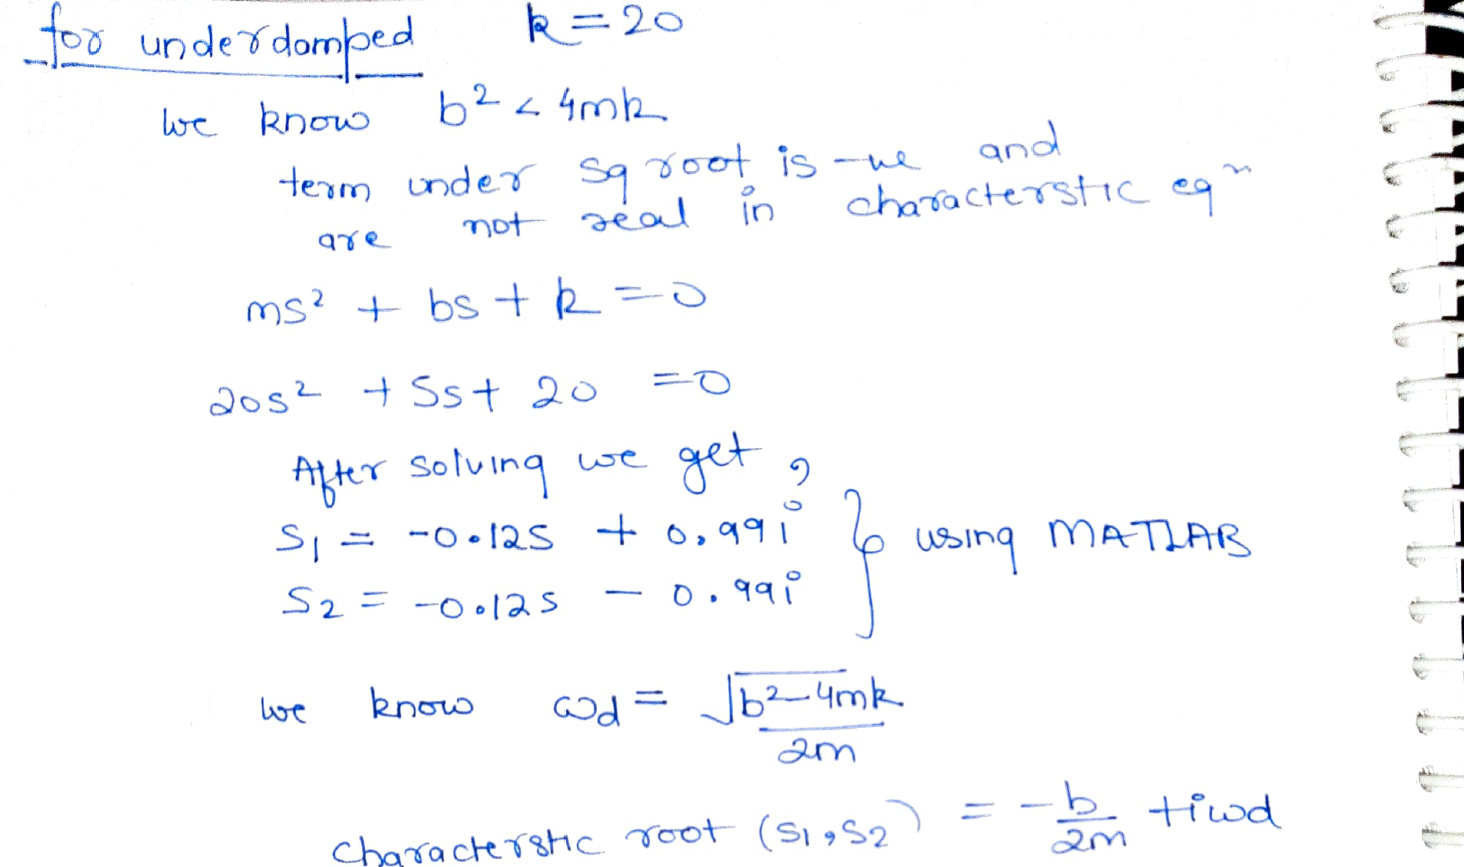 for underdamped k = 20
we know b² < 4mk
term under sq root is -ve and
are not real in characterstic eqⁿ
ms² + bs + k = 0
20s² + 5s + 20 = 0
After solving we get,
S₁ = -0.125 + 0.99i
S₂ = -0.125 - 0.99i } using MATLAB
we know ωd = √b²-4mk / 2m
characterstic root (S₁, S₂) = -b/2m +iωd